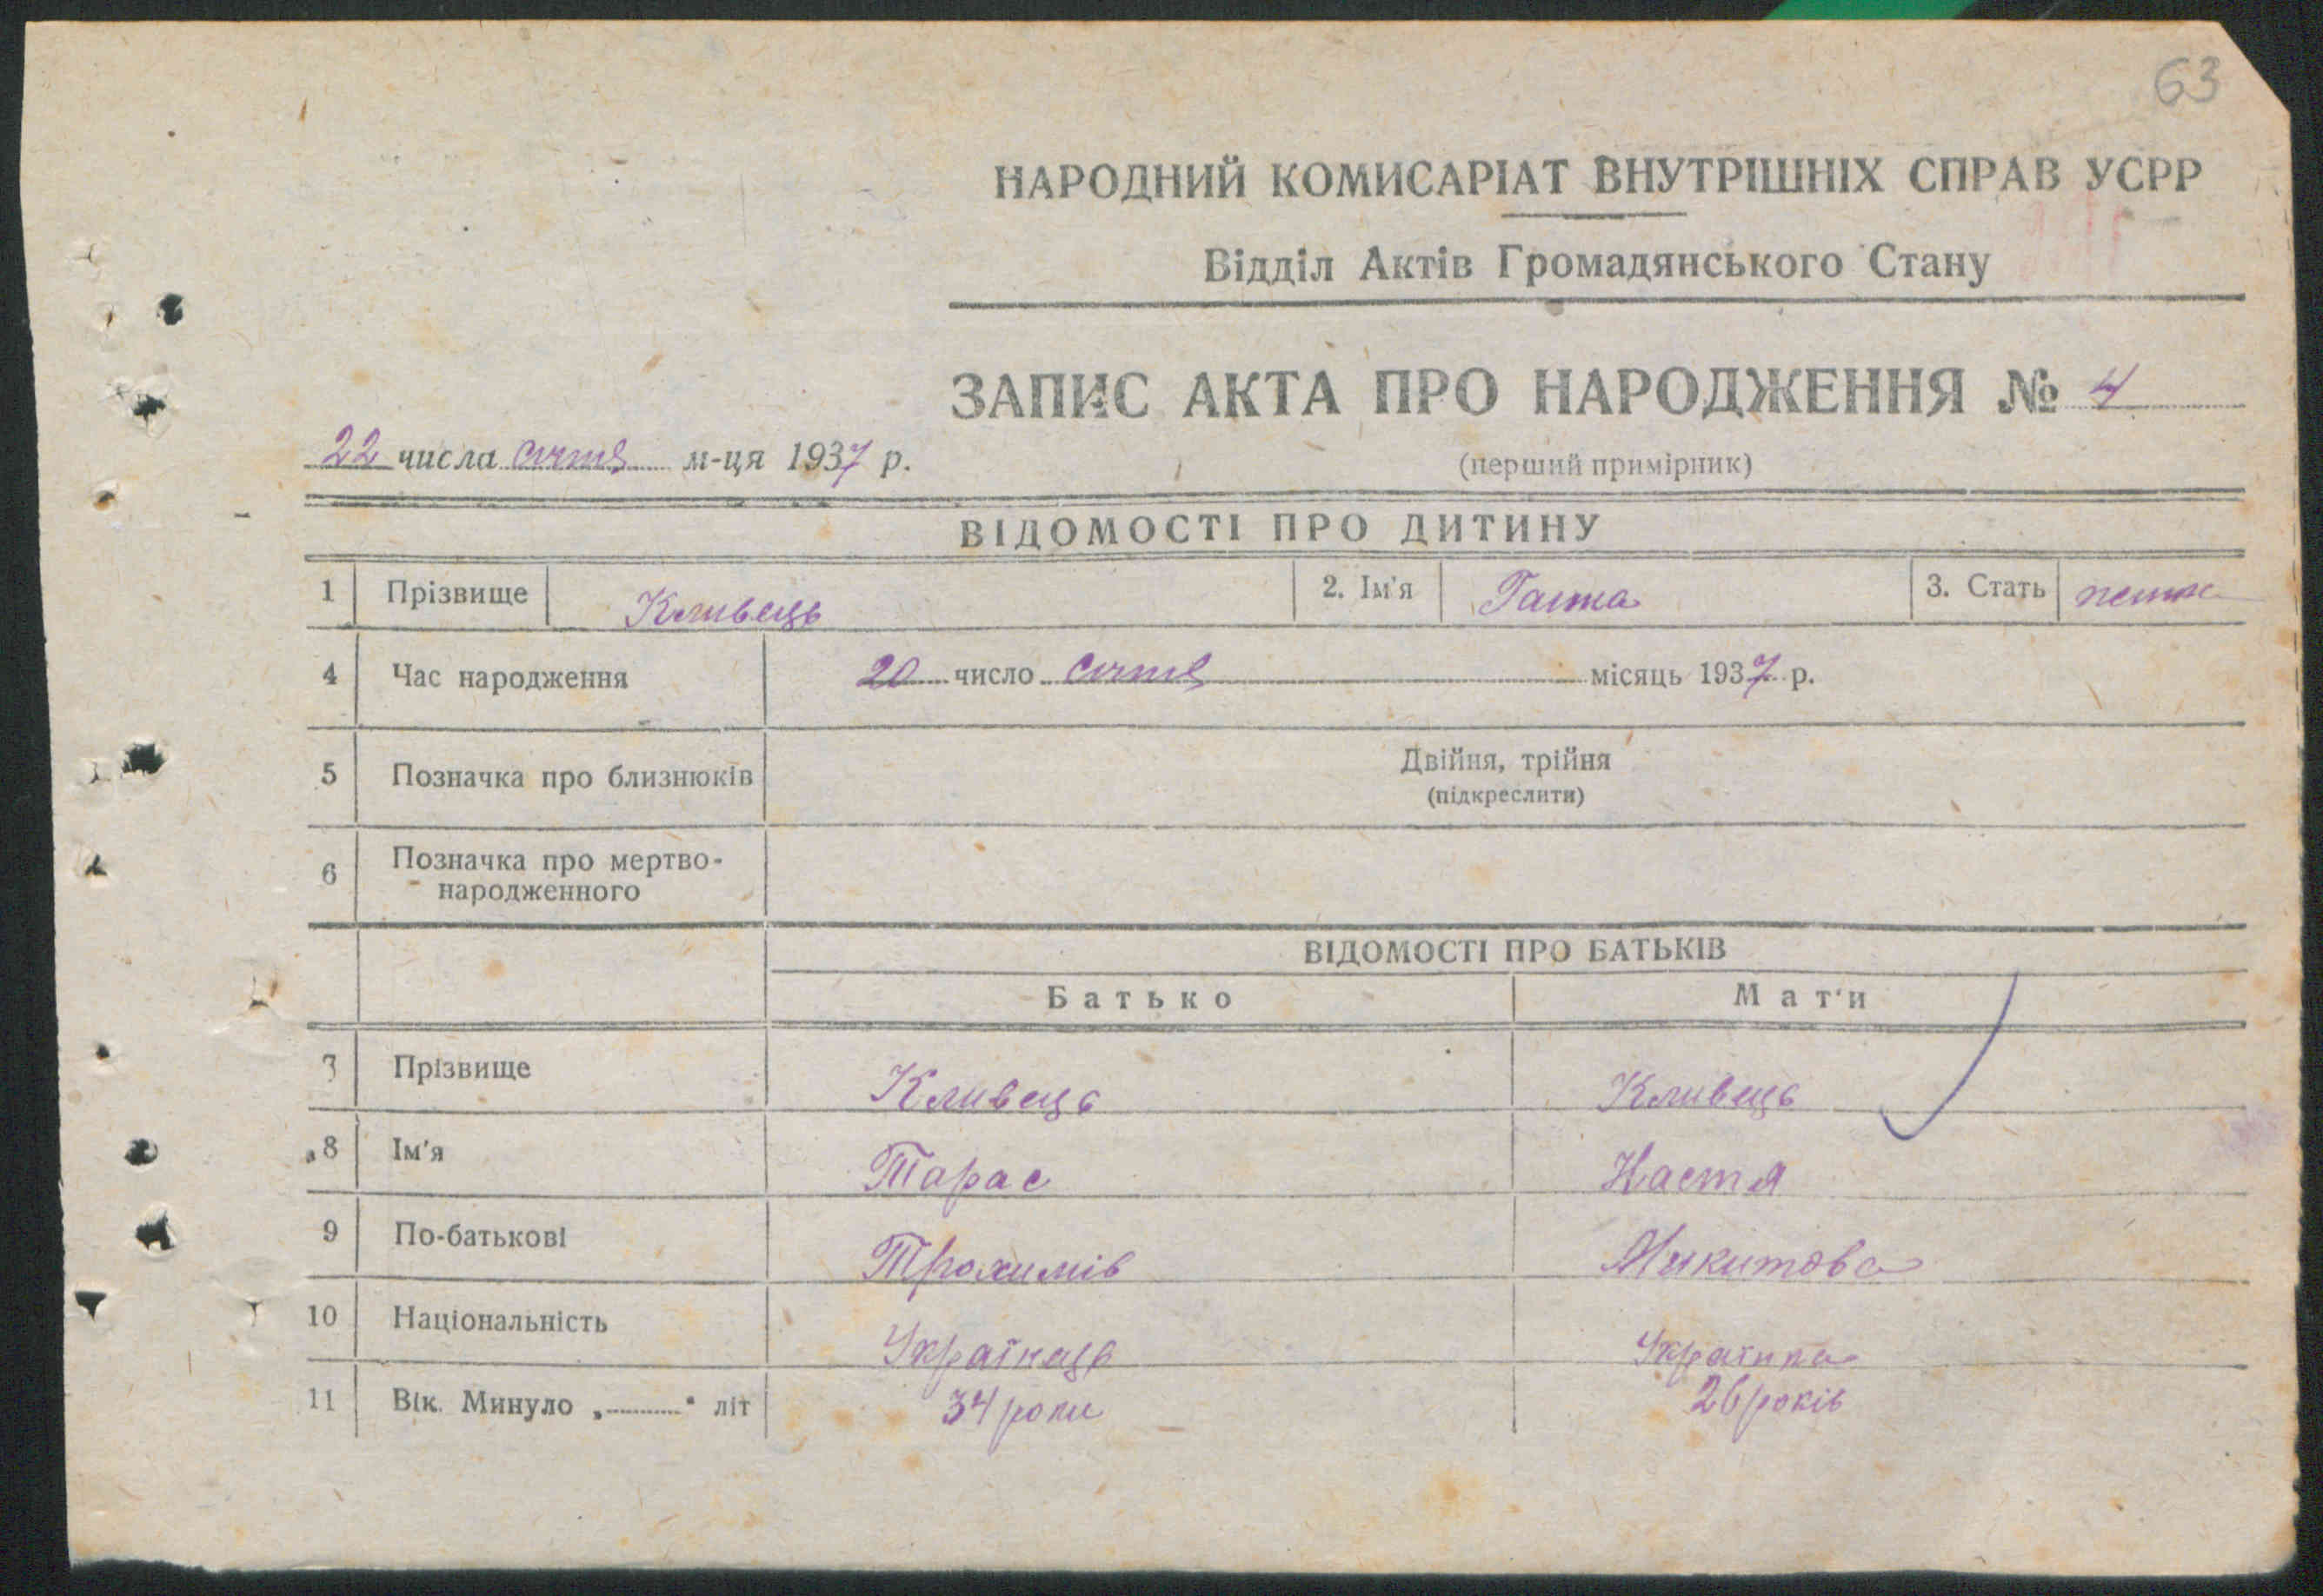 63
НАРОДНИЙ КОМИСАРІАТ ВНУТРІШНІХ СПРАВ УСРР
Відділ Актів Громадянського Стану
ЗАПИС АКТА ПРО НАРОДЖЕННЯ № 4
22 числа січня м-ця 1937 р.
(перший примірник)
ВІДОМОСТІ ПРО ДИТИНУ
1 Прізвище Кливець 2. Ім'я Ганна 3. Стать
4 Час народження 20 число січня місяць 1937 р.
5 Позначка про близнюків Двійня, трійня
(підкреслити)
6 Позначка про мертво-
народженного
ВІДОМОСТІ ПРО БАТЬКІВ
Батько Мати
7 Прізвище Кливець Кливець
8 Ім'я Тарас Настя
9 По-батькові Трохимів Микитова
10 Національність Українець Українка
11 Вік. Минуло „ “ літ 34 роки 26 років